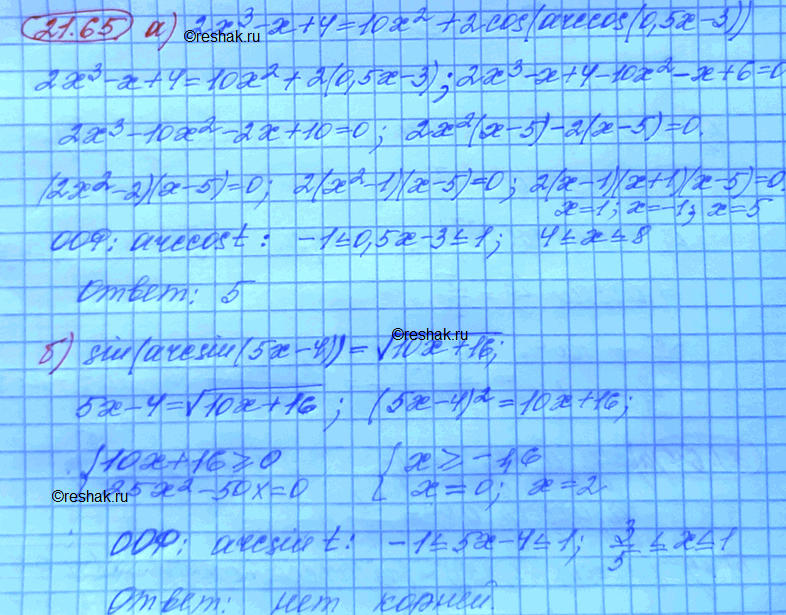 21.65 а) 2x³-x+4=10x²+2cos(arccos(0,5x-3))
©reshak.ru
2x³-x+4=10x²+2(0,5x-3); 2x³-x+4-10x²-x+6=0
2x³-10x²-2x+10=0; 2x²(x-5)-2(x-5)=0.
(2x²-2)(x-5)=0; 2(x²-1)(x-5)=0; 2(x-1)(x+1)(x-5)=0
x=1; x=-1; x=5
ООФ: arccost: -1≤0,5x-3≤1; 4≤x≤8
Ответ: 5
©reshak.ru
б) sin(arcsin(5x-4))=√10x+16;
5x-4=√10x+16; (5x-4)²=10x+16;
{10x+16≥0 {x≥-1,6
25x²-50x=0 x=0; x=2
©reshak.ru
ООФ: arcsint: -1≤5x-4≤1; 3/5≤x≤1
Ответ: нет корней.